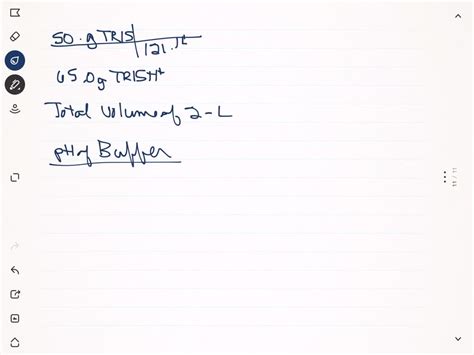 50. g TRIS
121.14
65.0g TRISH+
Total Volume of 2-L
pH of Buffer
11 / 11